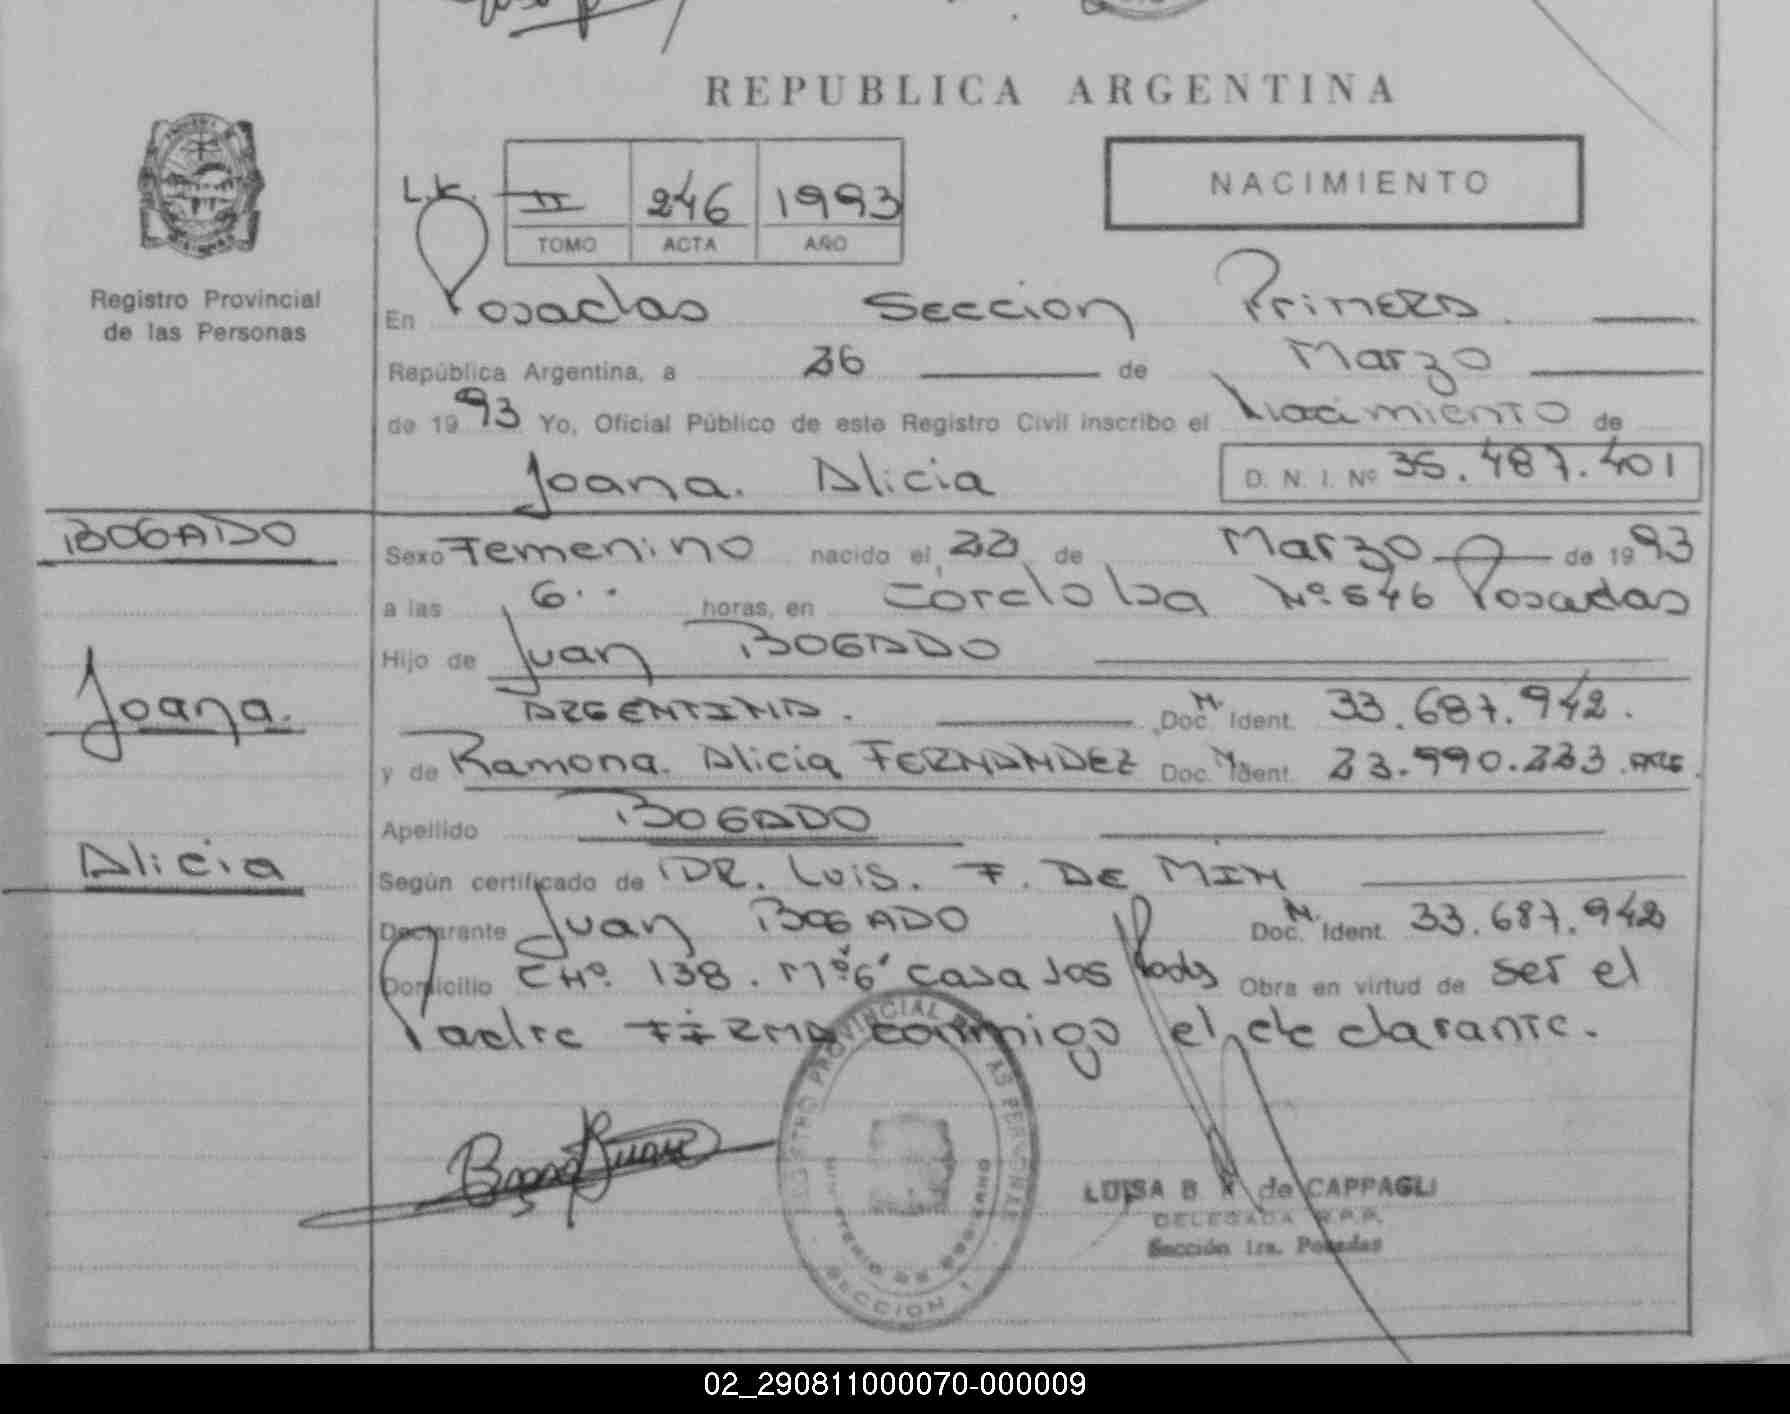 REPUBLICA ARGENTINA
NACIMIENTO
L.K.
II 246 1993
TOMO ACTA AÑO
Registro Provincial
de las Personas
En Posadas Sección Primera
República Argentina, a 26 de Marzo
de 1993 Yo, Oficial Público de este Registro Civil inscribo el Nacimiento de
Joana. Alicia D. N. I. Nº 35.487.401
BOGADO
Sexo Femenino nacido el 22 de Marzo de 1993
a las 6.. horas, en Córdoba Nº 546 Posadas
Hijo de Juan BOGADO
Joana.
ARGENTINA. Doc. N. Ident. 33.687.942.
y de Ramona. Alicia FERNANDEZ Doc. N. Ident. 23.990.223.ARG.
Apellido BOGADO
Alicia
Según certificado de DR. Luis. F. DE MIN
Declarante Juan BOGADO Doc. N. Ident. 33.687.942
Domicilio CHº. 138. Mº6' casa los Obra en virtud de ser el
Padre FIRMA conmigo el declarante.
REGISTRO PROVINCIAL DE LAS PERSONAS
MINISTERIO DE GOBIERNO
SECCION 1
LUISA B. de CAPPAGLI
DELEGADA R.P.P.
Sección 1ra. Posadas
02_290811000070-000009